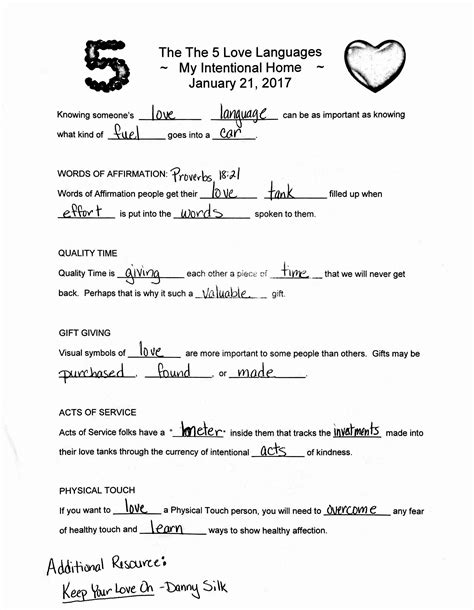 5
The The 5 Love Languages
~ My Intentional Home ~
January 21, 2017
Knowing someone's love language can be as important as knowing
what kind of fuel goes into a car.
WORDS OF AFFIRMATION: Proverbs 18:21
Words of Affirmation people get their love tank filled up when
effort is put into the words spoken to them.
QUALITY TIME
Quality Time is giving each other a piece of time that we will never get
back. Perhaps that is why it such a valuable gift.
GIFT GIVING
Visual symbols of love are more important to some people than others. Gifts may be
purchased, found, or made.
ACTS OF SERVICE
Acts of Service folks have a "meter" inside them that tracks the investments made into
their love tanks through the currency of intentional acts of kindness.
PHYSICAL TOUCH
If you want to love a Physical Touch person, you will need to overcome any fear
of healthy touch and learn ways to show healthy affection.
Additional Resource:
Keep Your Love On - Danny Silk